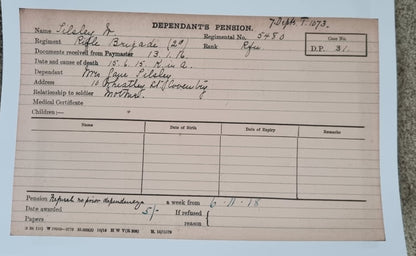 DEPENDANT'S PENSION. 7 Depts. T. 1073.
Name Tilsley W. Regimental No. 5480
Regiment Rifle Brigade (2nd) Rank Rfn Case No.
Documents received from Paymaster 13.1.16 D.P. 3/.
Date and cause of death 15.6.15 K in A.
Dependant Mrs Jane Tilsley.
Address 10 St Coventry
Relationship to soldier Mother.
Medical Certificate
Children:—
Name Date of Birth Date of Expiry Remarks
Pension Refused no prior dependence a week from 6.11.18
Date awarded 5/- If refused
Papers reason